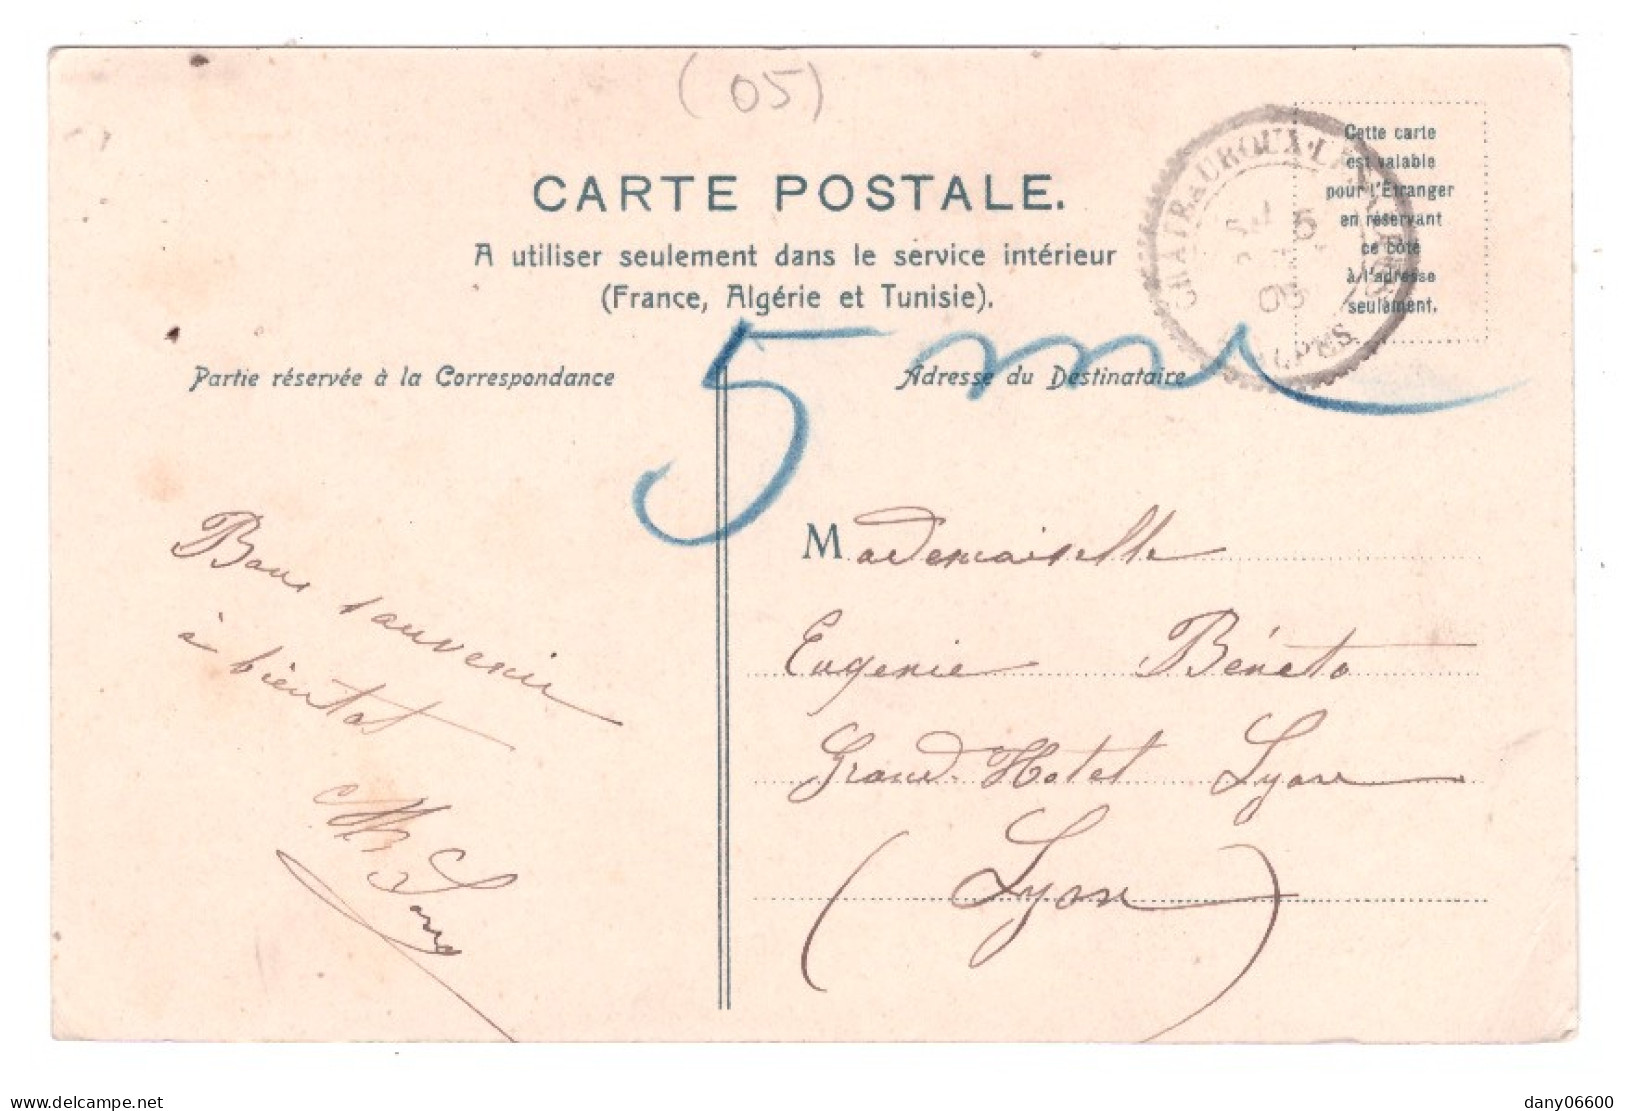 (05)
CARTE POSTALE.
A utiliser seulement dans le service intérieur
(France, Algérie et Tunisie).
Cette carte
est valable
pour l'Étranger
en réservant
ce côté
à l'adresse
seulement.
CHATEAUROUX-LES-ALPES
5
05
ALPES
Partie réservée à la Correspondance
Adresse du Destinataire
5
Bons souvenir
à bientot
Mademoiselle
Eugenie Béneto
Grand Hotel Lyon
(Lyon)
delcampe.net
dany06600